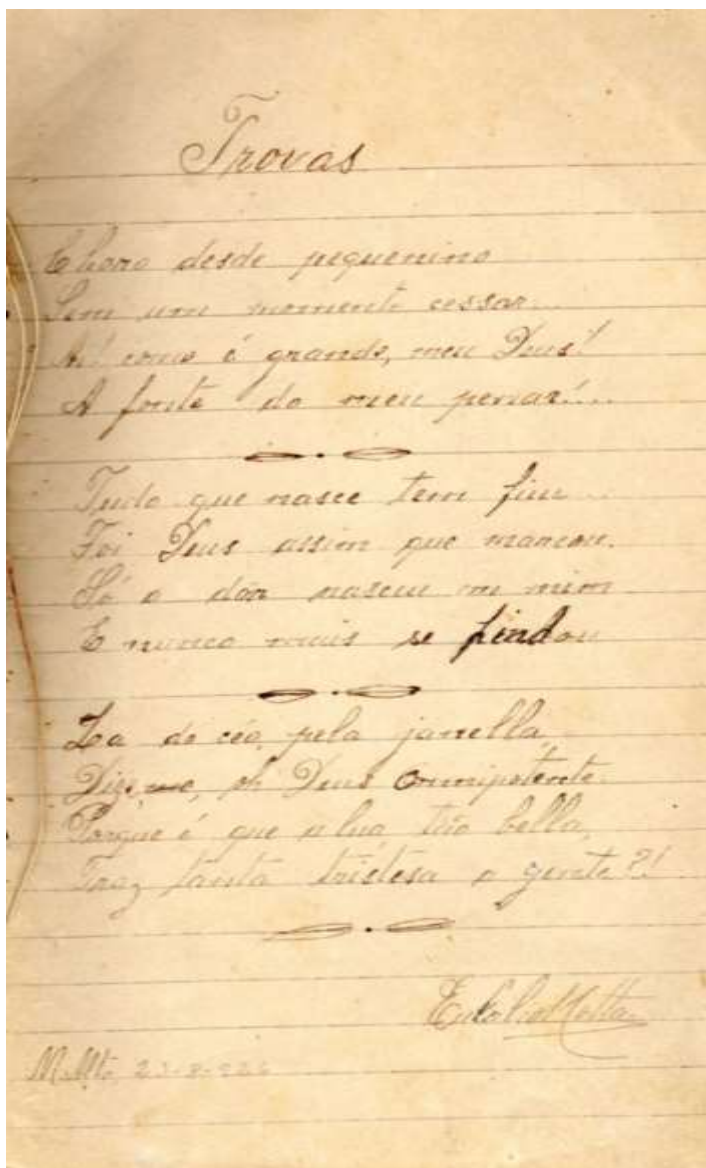 Trovas
Choro desde pequenino
Sem um momento cessar...
Ai! como é grande, meu Deus!
A fonte do meu penar!...
Tudo que nasce tem fim...
Foi Deus assim que marcou.
Só a dôr nasceu em mim
E nunca mais se findou
La do céo, pela janella,
Dize-me, oh Deus Omnipotente
Porque é que a lua tão bella,
Traz tanta tristesa a gente?!
Eulalio Motta
M. Alto